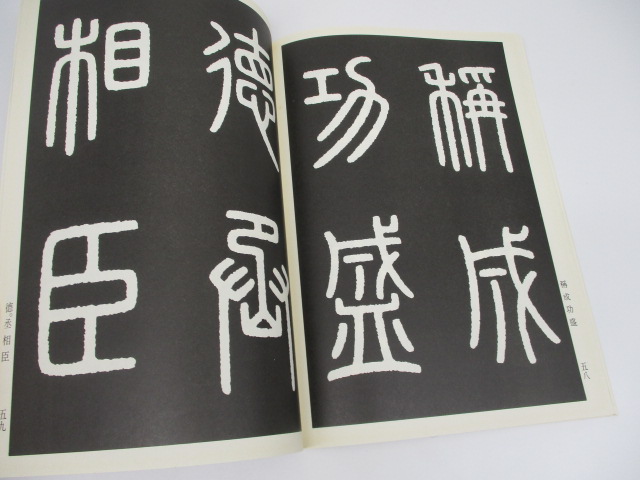 稱成
功盛
稱成功盛
五八
德丞
相臣
德丞相臣
五九